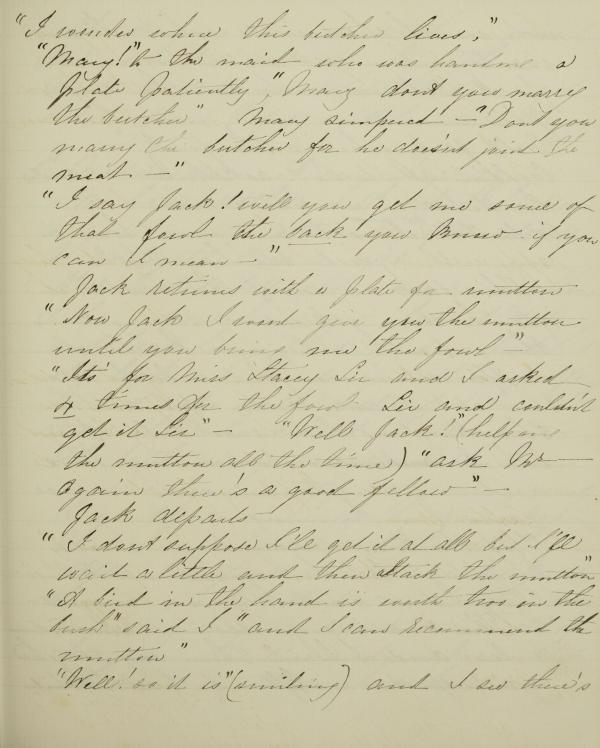 "I wonder where this butcher lives,"
"Mary!" to the maid who was handing a
plate patiently, "Mary dont you marry
the butcher" Mary simpered - "Dont you
marry the butcher for he does'nt joint the
meat -"
"I say Jack! will you get me some of
that fowl the back you know if you
can I mean -"
Jack returns with a plate for mutton
"Now Jack I wont give you the mutton
until you bring me the fowl -"
"Its for Miss Stacey Sir and I asked
4 times for the fowl Sir and couldn't
get it Sir" - "Well Jack!" (helping
the mutton all the time) "ask Mr ——
again there's a good fellow" -
Jack departs
"I dont suppose I'll get it at all but I'll
wait a little and then attack the mutton"
"A bird in the hand is worth two in the
bush" said I "and I can recommend the
mutton"
"Well! so it is" (smiling) and I see there's